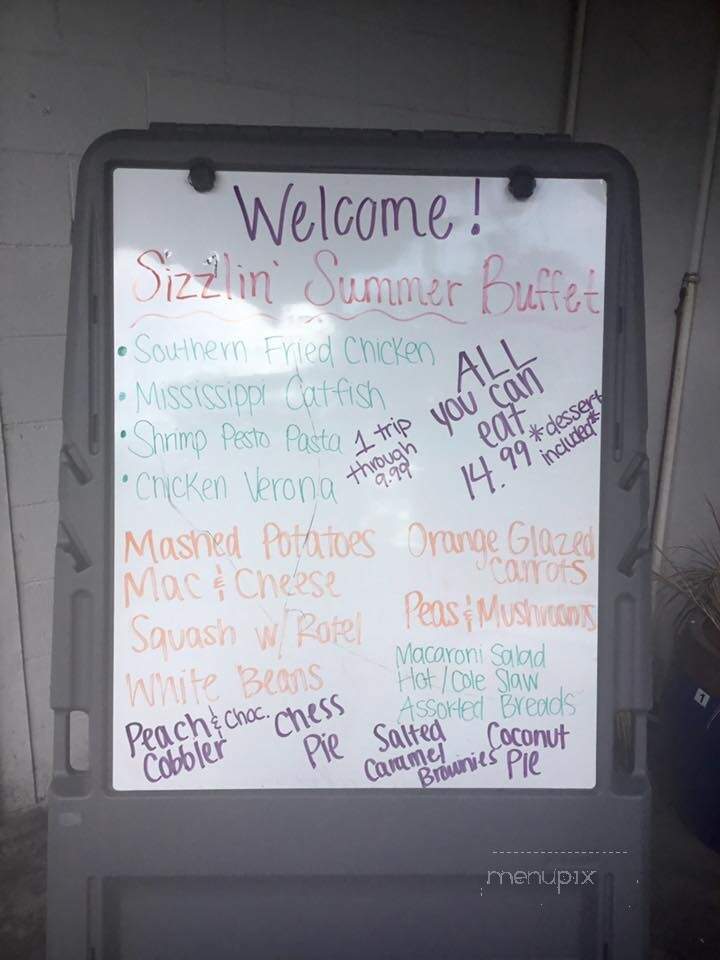 Welcome!
Sizzlin' Summer Buffet
• Southern Fried Chicken
• Mississippi Catfish
• Shrimp Pesto Pasta
• Chicken Verona
1 trip
through
9.99
ALL
you can
eat
14.99
*dessert
included*
Mashed Potatoes
Mac & Cheese
Squash w/ Rotel
White Beans
Orange Glazed
Carrots
Peas & Mushrooms
Macaroni Salad
Hot / Cole Slaw
Assorted Breads
Peach & Choc.
Cobbler
Chess
Pie
Salted
Caramel
Brownies
Coconut
Pie
1
menupix